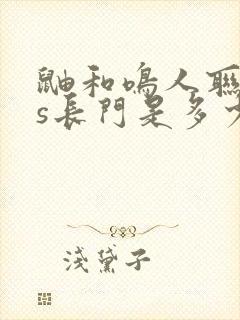 鼬和鳴人聯
s長門是多少
淺黛子